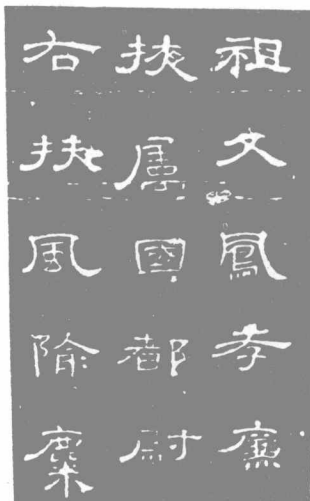 祖父鳳孝廉
掖屬國都尉
右扶風隃麋